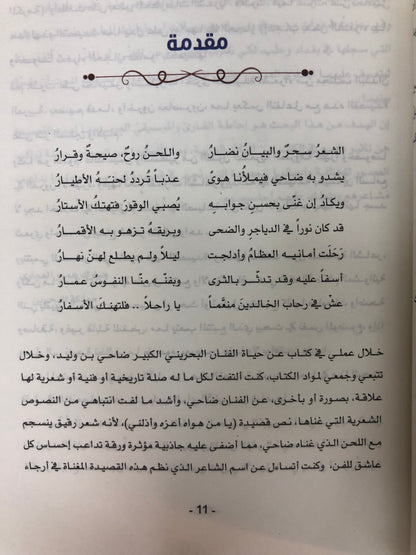 مقدمة
الشعرُ سحرٌ والبيانُ نضارُ واللحنُ روحٌ، صيحةٌ وقرارُ
يشدو به ضاحي فيملأنا هوىً عذباً تُرددُ لحنَهُ الأطيارُ
ويكادُ إن غنّى بحسنِ جوابهِ يُصبي الوقورَ فتهتكُ الأستارُ
قد كان نوراً في الدياجرِ والضحى وبريقهُ تزهو بهِ الأقمارُ
رَحَلَت أمانيهِ العظامُ وأدلجت ليلاً ولم يطلع لهنّ نهارُ
أسفاً عليهِ وقد تدثّر بالثرى وبفنّهِ منّا النفوسُ عمارُ
عشْ في رحابِ الخالدينَ منعَّماً يا راحلاً .. فلتهنكَ الأسفارُ
خلال عملي في كتاب عن حياة الفنان البحريني الكبير ضاحي بن وليد، وخلال
تتبعي وجمعي لمواد الكتاب، كنت ألتفت لكل ما له صلة تاريخية أو فنية أو شعرية لها
علاقة، بصورة أو بأخرى، عن الفنان ضاحي، وأشد ما لفت انتباهي من النصوص
الشعرية التي غناها، نص قصيدة (يا من هواه أعزه وأذلني)، لأنه شعر رقيق ينسجم
مع اللحن الذي غناه ضاحي، مما أضفى عليه جاذبية مؤثرة ورقة تداعب إحساس كل
عاشق للفن، وكنت أتساءل عن اسم الشاعر الذي نظم هذه القصيدة المغناة في أرجاء
- 11 -